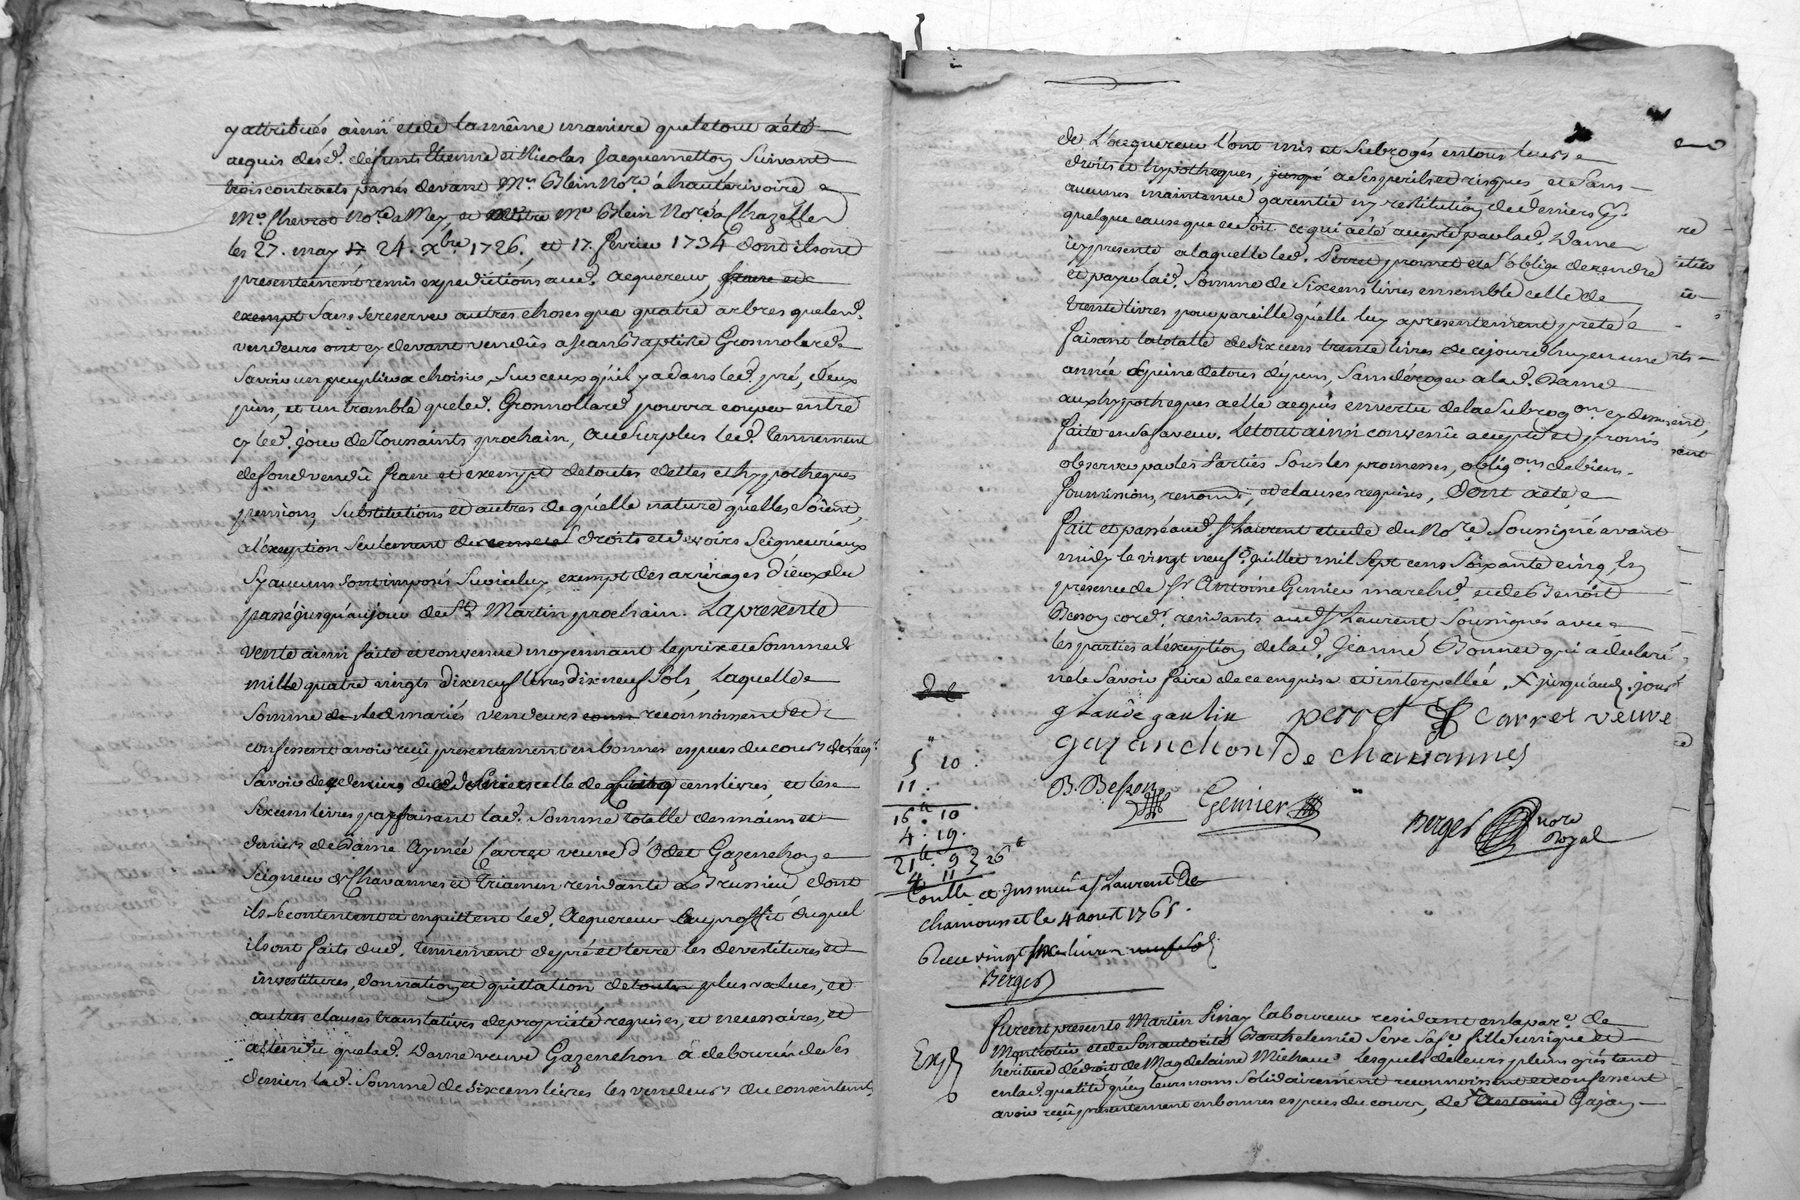 y attribués ainsi et de la même maniere que le tout a été
acquis desd. defunts Etienne et Nicolas Jacquemetton suivant
trois contracts passés devant Me. Blein Nore. à hauterivoire
Me. Chevrot Nore. a Mey, et Me Blein Nore. à Chazelles
les 27. may 24. Xbre 1726. et 17. fevrier 1734 dont ils ont
presentement remis expeditions aud. acquereur, franc et
exempt sans se reserver autres choses que quatre arbres que lesd.
vendeurs ont cy devant vendus a Jean Baptiste Gronnolard
savoir un peuplier a choisir, sur ceux qu'il y a dans led. pré, deux
pins, et un tremble que led. Gronnollard pourra couper entre
cy led. jour de Toussaints prochain, au surplus led. tennement
de fond vendu franc et exempt de toutes dettes et hypotheques
pensions, substitutions et autres de quelle nature qu'elles soient,
a l'exeption seulement des droits et devoirs seigneuriaux
sy aucuns sont imposés sur iceluy, exempt des arrérages d'ieux du
passé jusqu'au jour de St. Martin prochain. La presente
vente ainsi faite et convenue moyennant le prix et somme de
mille quatre vingts dix neuf livres dix neuf sols, laquelle
somme lesd mariés vendeurs reconnoissent et
confessent avoir reçu presentement en bonnes especes du cours de l'acqr.
savoir de ses deniers celle de cens livres, et les
six cens livres parfaisant lad. somme totalle des mains et
deniers de Dame Aymée Carret veuve d'Odet Gazenchon
seigneur de Chavannes et Triamen residante a Brussieu dont
ils se contentent et enquittent led. acquereur au proffit duquel
ils ont faits dud. tennement de pré et terre les devestitures et
investitures, donnation et quittation de toutes plus values, et
autres clauses translatives de propriété requises, et necessaires, et
attendu que lad. Dame veuve Gazenchon à debourcé de ses
deniers lad. somme de six cens livres les vendeurs du consentemt.
de l'acquereur l'ont mis et subrogés en tous leurs
droits et hypotheques, a ses perils et risques, et sans
aucunes maintenue garentie ny restitution de deniers
quelque cause que ce soit ce qui a été accepté par lad. Dame
icy presente a laquelle led. Perret promet et s'oblige de rendre
et payer lad. somme de six cens livres ensemble celle de
trente livres pour pareille qu'elle luy a presentement preté
faisant la totalle de six cens trente livres de ce jourd'huy en une
année a peine de tous depens, sans déroger a lad. Dame
aux hypotheques a elle acquis en vertu de la subrogon. cy dessus
faite en sa faveur. Le tout ainsi convenu accepté et promis
observer par les Parties sous les promesses, obligons. de biens
soumissions, renons. et clauses requises, Dont acte
fait et passé aud. St. Laurent etude du Nore. soussigné avant
midy le vingt neufe. juillet mil sept cens soixante cinq En
presence de Sr Antoine Gemier marchd. et de Benoist
Besson cordr. residants aud St Laurent soussignés avec
les parties a l'exeption de lad. Jeanne Bonnet qui a declaré
ne le savoir faire de ce enquise et interpellée. X jusqu'aud. jour
glaude gaulin perret carret veuve
gazanchon de chavannes
B. Besson Gemier
Berger nore Royal
5 10
11
16 ll 10
4. 19.
21 ll. 9 } 26
4 11
Conlle. et Insinué a St Laurent De
chamousset le 4 aout 1765.
Recu vingt six livres neuf sol.
Berger
Exp.
furent presents Martin Pinay laboureur residant en la pare. de
Montrotier et de son autorité Barthelemie Seve sa fe. fille unique et
heritiere de droit de Magdelaine Michaud lesquels de leurs plein grés tant
en lad. qualité qu'en leurs noms solidairement reconnoissent et confessent
avoir reçu presentement en bonnes especes du cours, de Sr Antoine Gajan